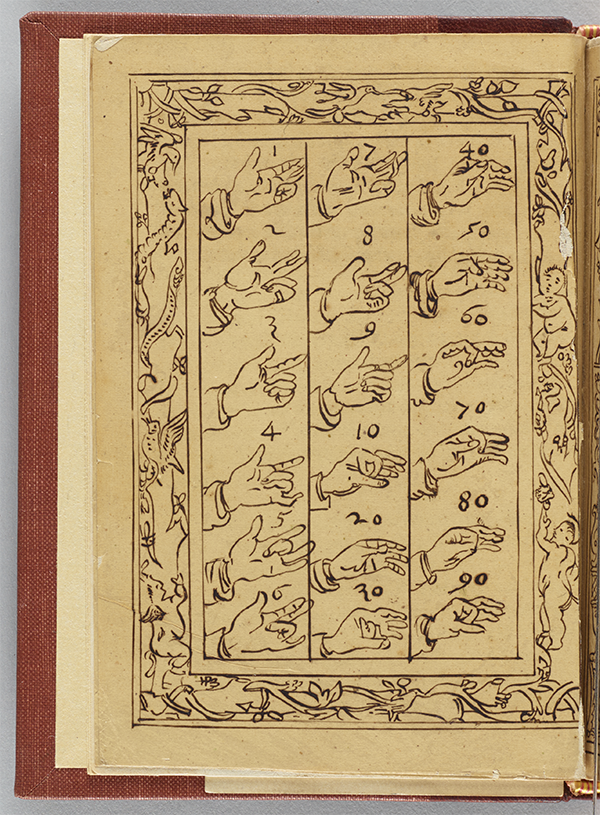 1
2
3
4
5
6
7
8
9
10
20
30
40
50
60
70
80
90